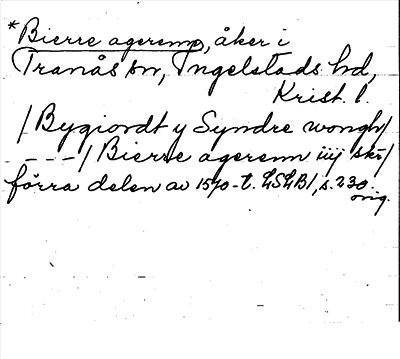 *Bierre agerenn, åker i
Tranås sn, Ingelstads hd,
Krist. l.
/Bygiordt y Syndre wongh/
- - - / Bierre agerenn iiij sks/
förra delen av 1570-t. LSLB1, s. 230
orig.